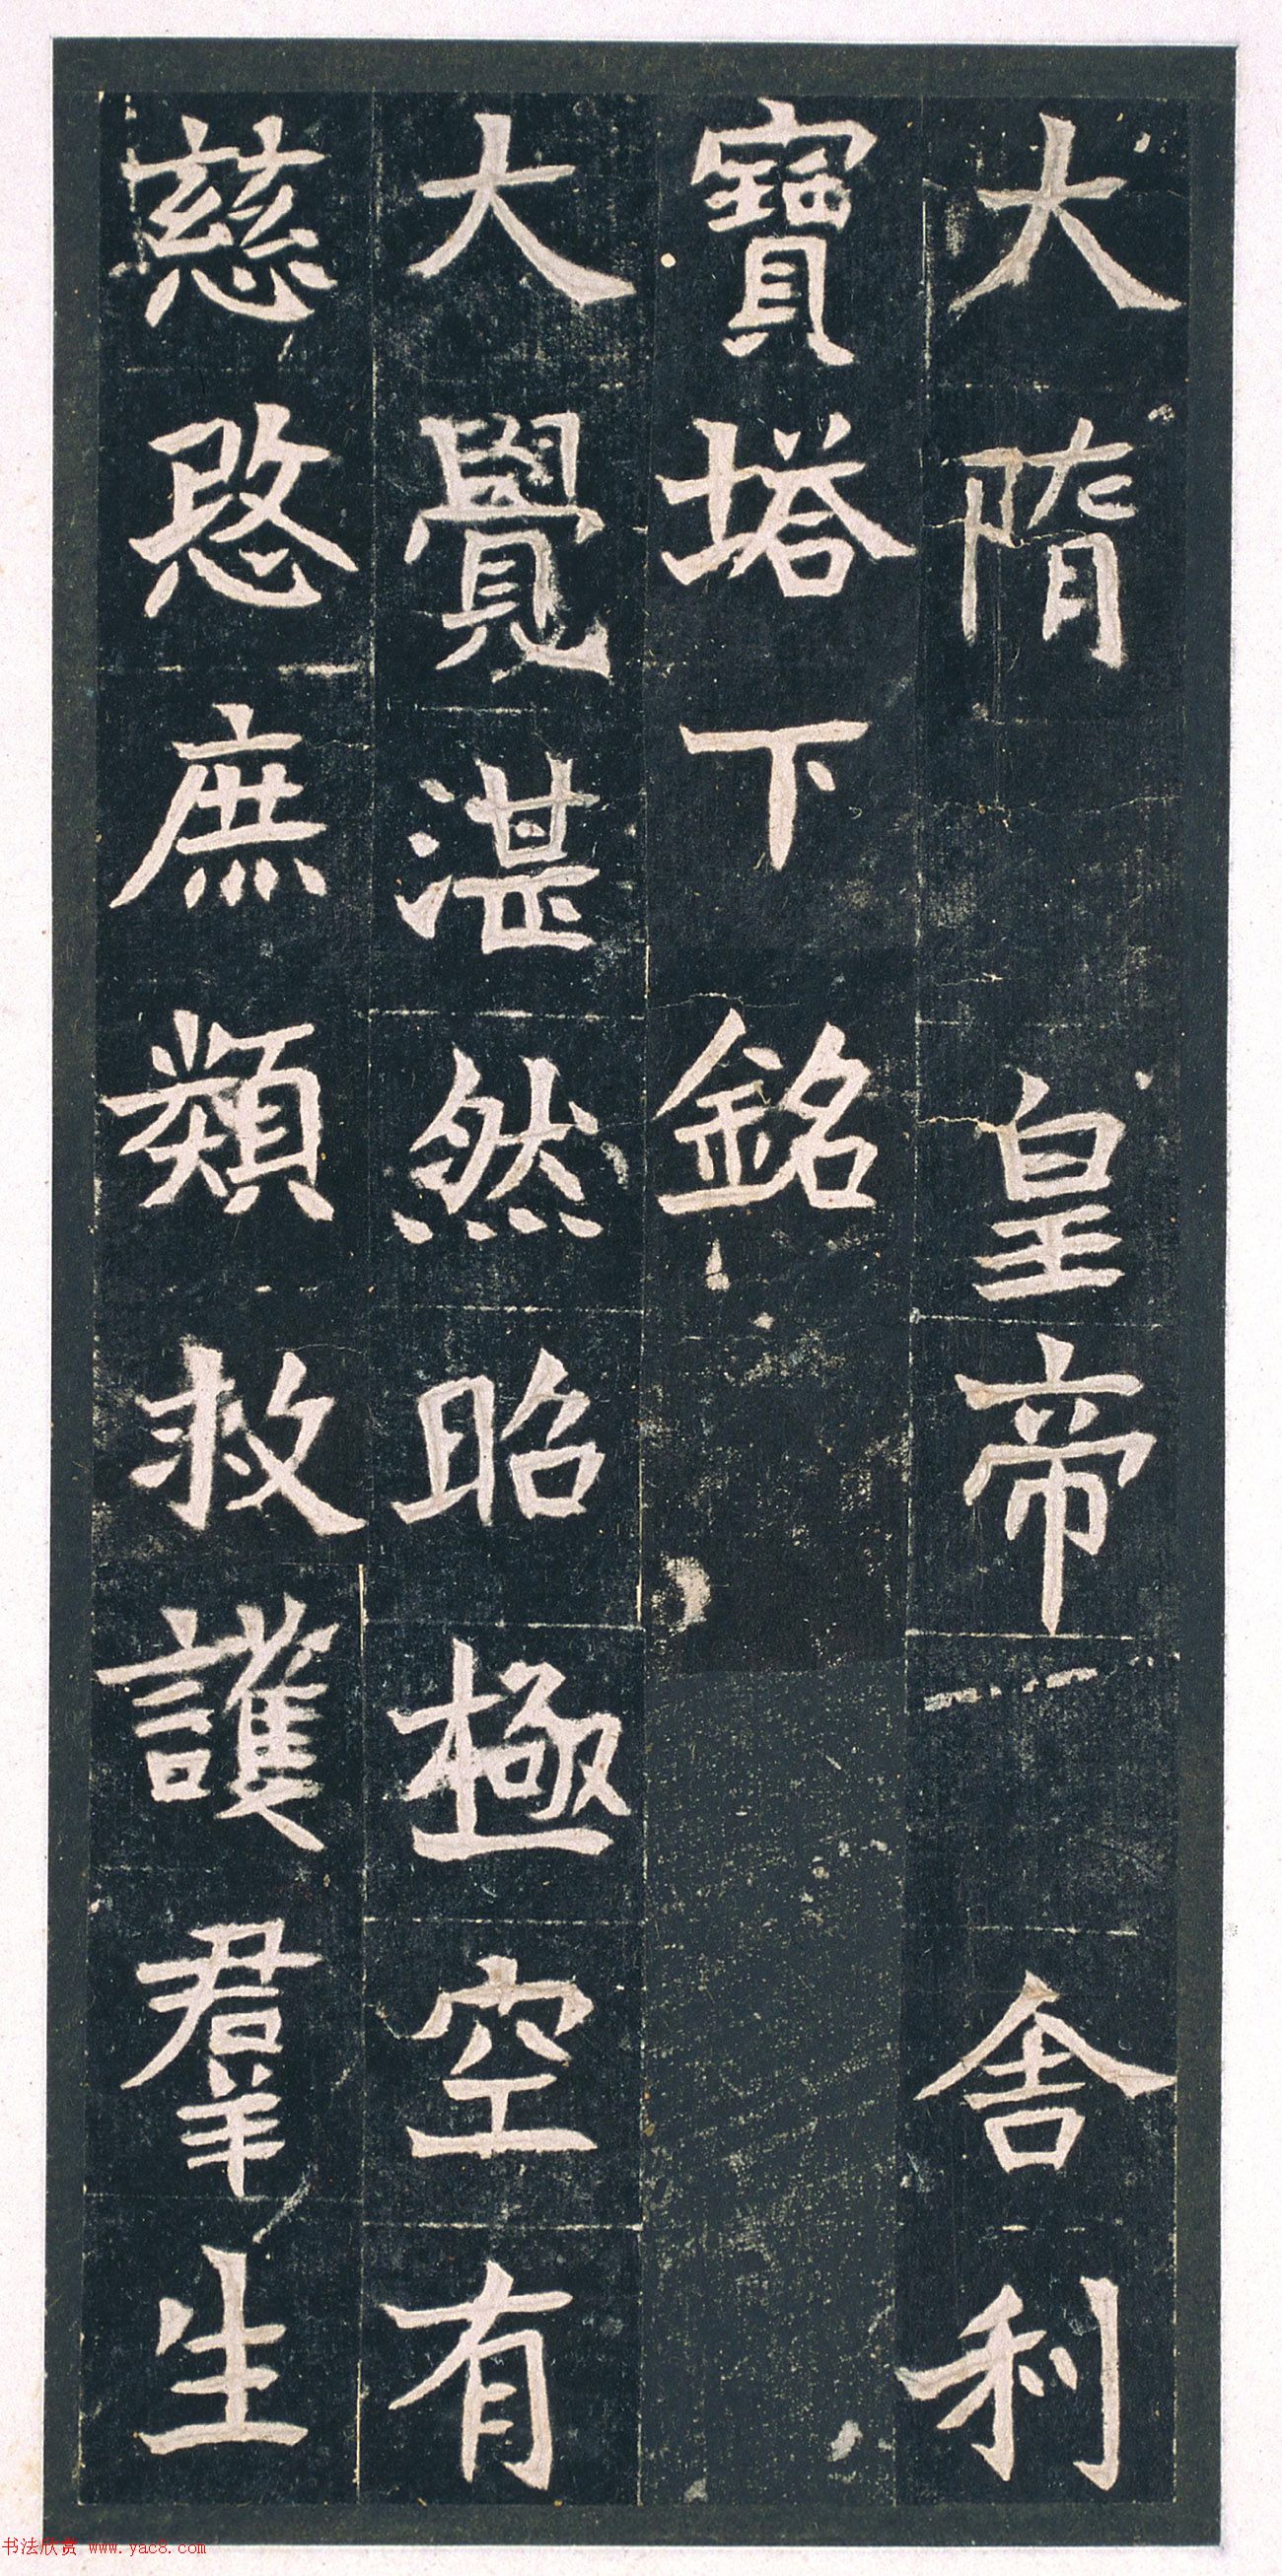 大隋皇帝舍利
寶塔下銘
大覺湛然昭極空有
慈愍庶類救護羣生
书法欣赏 www.yac8.com